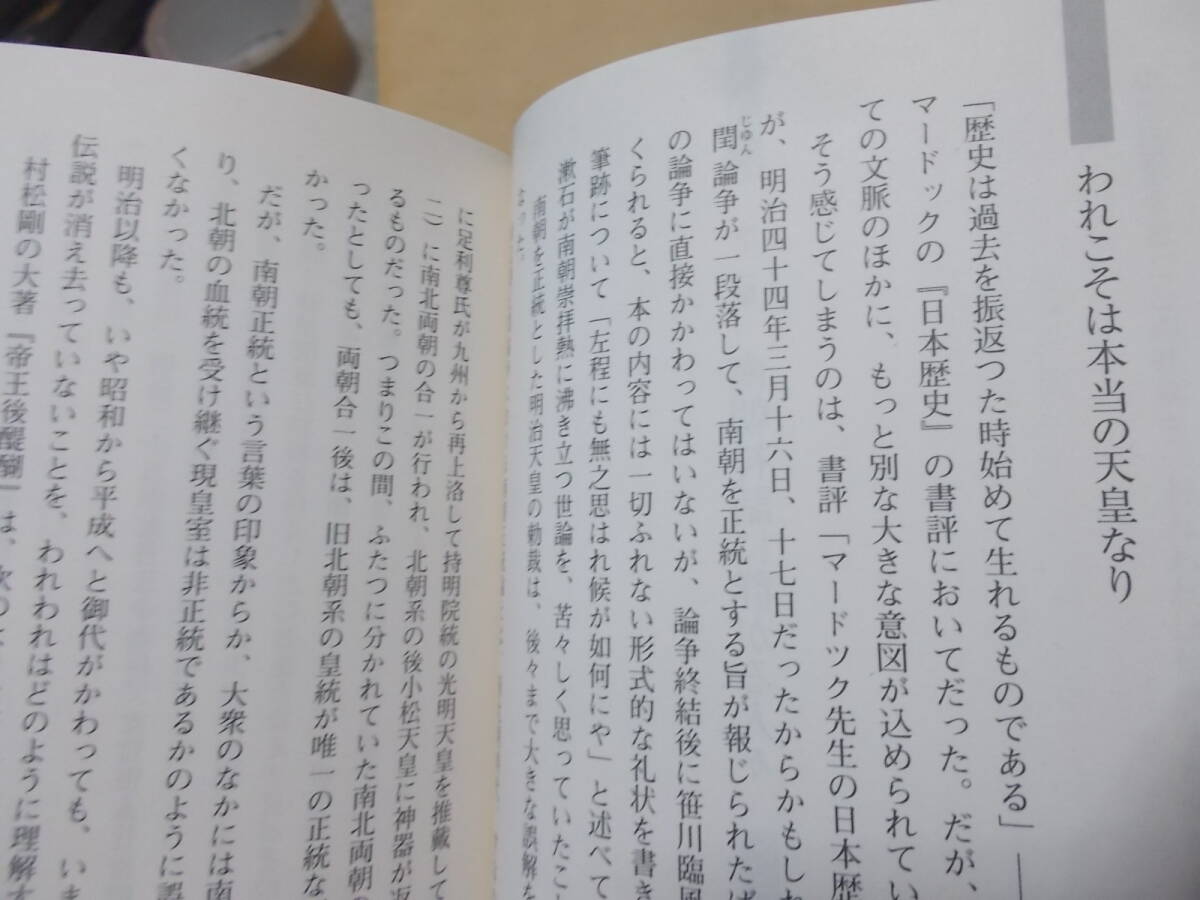 われこそは本当の天皇なり
「歴史は過去を振返つた時始めて生れるものである」―
マードックの『日本歴史』の書評においてだった。だが、
ての文脈のほかに、もっと別な大きな意図が込められてい
そう感じてしまうのは、書評「マードツク先生の日本歴
が、明治四十四年三月十六日、十七日だったからかもしれ
閏じゆん論争が一段落して、南朝を正統とする旨が報じられたば
の論争に直接かかわってはいないが、論争終結後に笹川臨風
くられると、本の内容には一切ふれない形式的な礼状を書き
筆跡について「左程にも無之思はれ候が如何にや」と述べて
漱石が南朝崇拝熱に沸き立つ世論を、苦々しく思っていたこ
南朝を正統とした明治天皇の勅裁は、後々まで大きな誤解を
なった。
に足利尊氏が九州から再上洛して持明院統の光明天皇を推戴して
二）に南北両朝の合一が行われ、北朝系の後小松天皇に神器が返
るものだった。つまりこの間、ふたつに分かれていた南北両朝の
ったとしても、両朝合一後は、旧北朝系の皇統が唯一の正統な
かった。
だが、南朝正統という言葉の印象からか、大衆のなかには南
り、北朝の血統を受け継ぐ現皇室は非正統であるかのように誤
くなかった。
明治以降も、いや昭和から平成へと御代がかわっても、いま
伝説が消え去っていないことを、われわれはどのように理解す
村松剛の大著『帝王後醍醐』は、次のよ